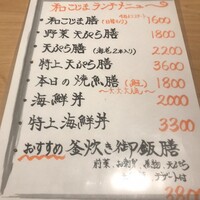 和こじまランチメニュー
和こじま膳 1600
野菜天ぷら膳 1800
天ぷら膳 (海老2本入り) 2200
特上天ぷら膳 3600
本日の焼魚膳 (鮭) 1800
海鮮丼 2000
特上海鮮丼 3300
おすすめ 釜炊き御飯膳
前菜 お刺身 煮物 天ぷら
デザート付